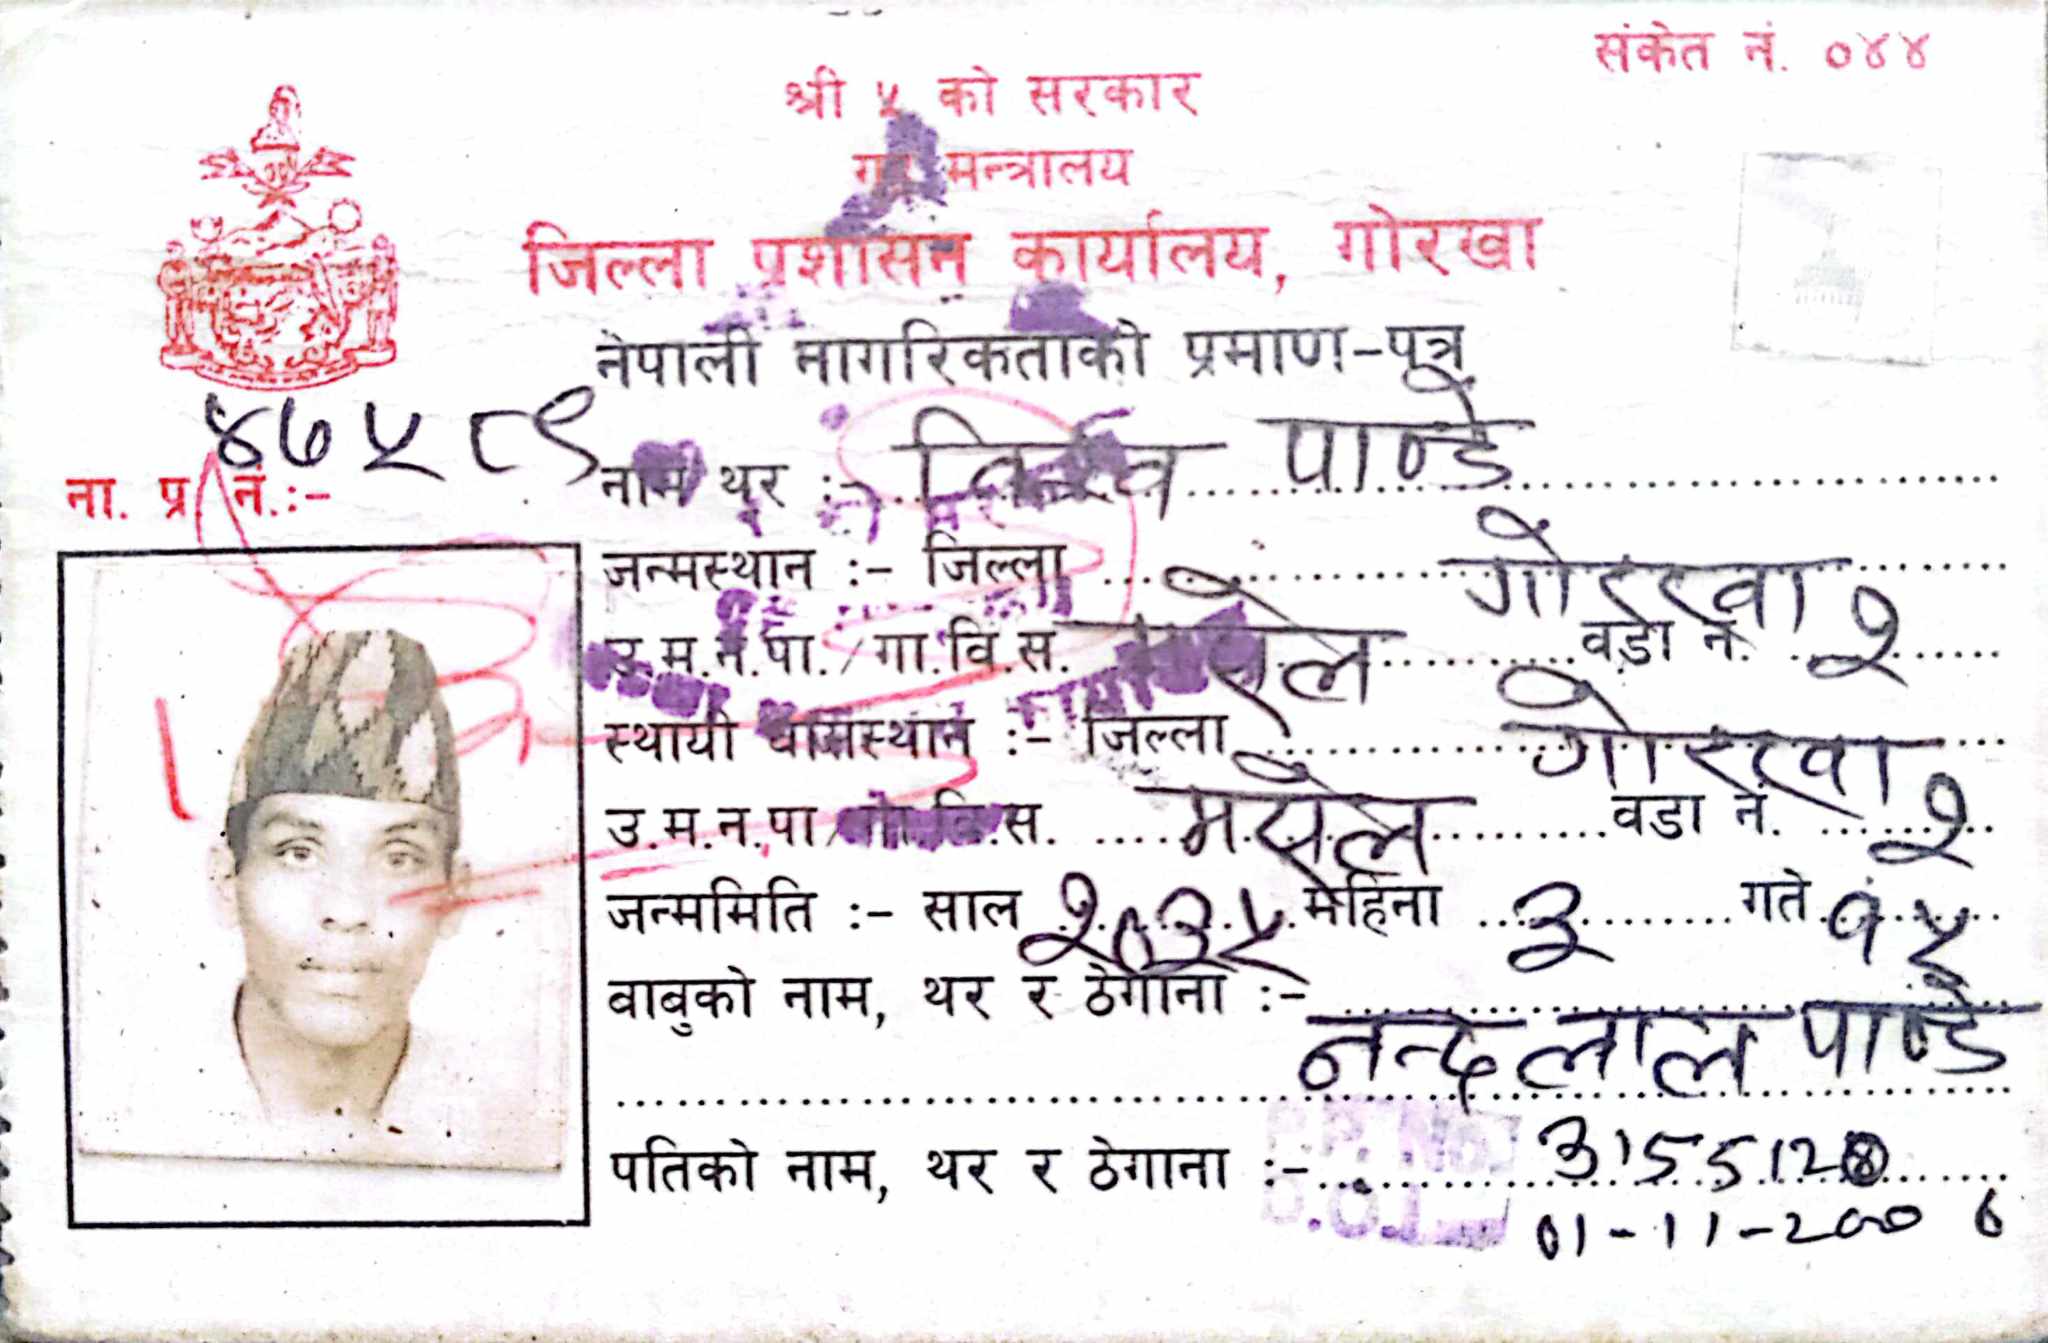 संकेत नं. ०४४
श्री ५ को सरकार
गृह मन्त्रालय
जिल्ला प्रशासन कार्यालय, गोरखा
नेपाली नागरिकताको प्रमाण-पत्र
ना. प्र. नं.:- ४७५८९
नाम थर :- पाण्डे
जन्मस्थान :- जिल्ला गोरखा
उ.म.न.पा./गा.वि.स. मसेल वडा नं. २
स्थायी बासस्थान :- जिल्ला गोरखा
उ.म.न.पा/गा.वि.स. मसेल वडा नं. २
जन्ममिति :- साल २०३५ महिना ३ गते १५
बाबुको नाम, थर र ठेगाना :-
नन्दलाल पाण्डे
पतिको नाम, थर र ठेगाना :-
P.P. No.
D.O.I
01-11-2006